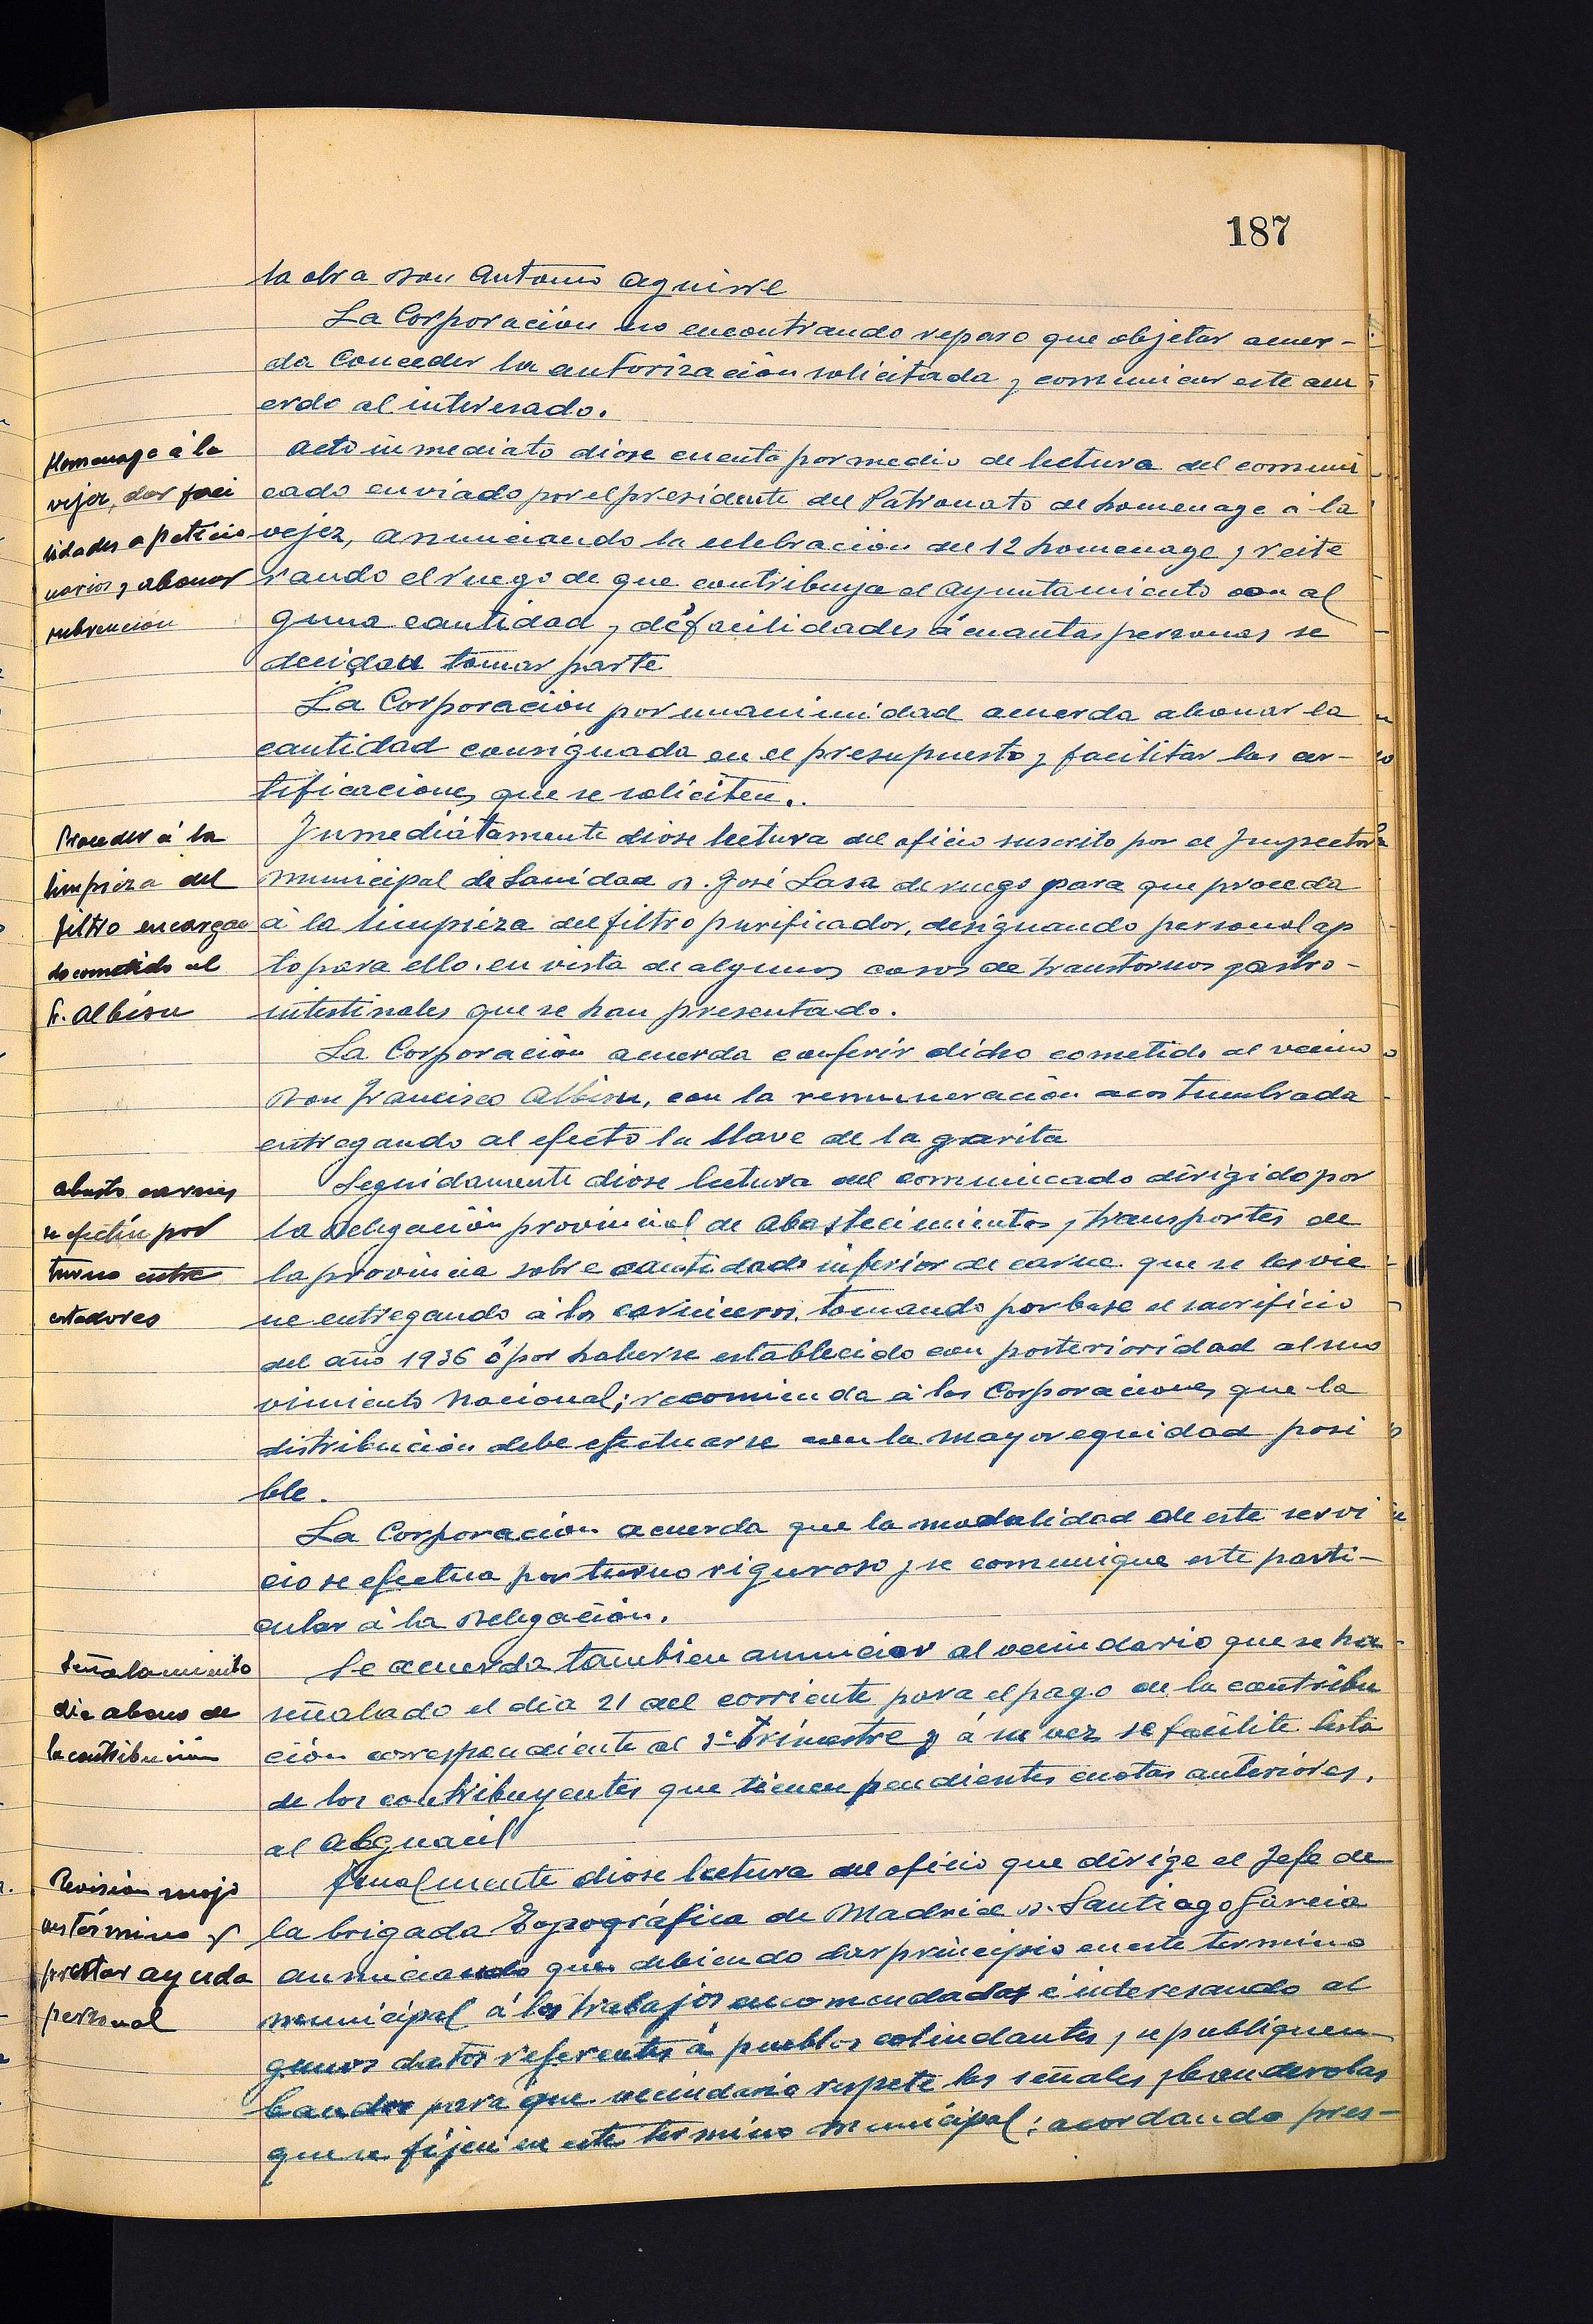 187
la obra Don Antonio Aguirre
La Corporación no encontrando reparo que objetar acuer-
da Conceder la autorización solicitada y comunicar este acu
erdo al interesado.
Homenage á la
vejez, dar faci
lidades a peticio
narios y abonar
subvención
Acto inmediato diose cuenta por medio de lectura del comuni
cado enviado por el presidente del Patronato de homenage á la
vejez, anunciando la celebración del 12 homenage y reite
rando el ruego de que contribuya el Ayuntamiento con al
guna cantidad y dé facilidades á cuantas personas se
decidan tomar parte
La Corporación por unanimidad acuerda abonar la
cantidad consignada en el presupuesto y facilitar las cer-
tificaciones que se soliciten..
Proceder á la
limpieza del
filtro encargan
do cometido al
Sr. Albisu
Inmediatamente diose lectura del oficio suscrito por el Inspector
municipal de Sanidad D. José Lasa de ruego para que proceda
á la limpieza del filtro purificador, designando personal ap
to para ello. en vista de algunos casos de transtornos gastro-
intestinales que se han presentado.
La Corporación acuerda conferir dicho cometido al vecino
Don Francisco Albisu, con la remuneración acostumbrada
entregando al efecto la llave de la garita
abasto carnes
se efectúe por
turno entre
cortadores
Seguidamente diose lectura del comunicado dirigido por
la Delegación provincial de Abastecimientos y transportes de
la provincia sobre cantidad inferior de carne que se les vie
ne entregando á los carniceros, tomando por base el sacrificio
del año 1936 ó por haberse establecido con posterioridad al mo
vimiento Nacional; recomienda á las Corporaciones que la
distribución debe efectuarse con la mayor equidad posi
ble.
La Corporación acuerda que la modalidad de este servi
cio se efectua por turno riguroso y se comunique este parti-
cular á la Delegación.
Señalamiento
dia abono de
la contribución
Se acuerda tambien anunciar al vecindario que se ha
señalado el dia 21 del corriente para el pago de la contribu
ción correspondiente al 3º trimestre y á su vez se facilite lista
de los contribuyentes que tienen pendientes cuotas anteriores,
al Alguacil
Revisión mojo
nes término y
prestar ayuda
personal
Finalmente diose lectura del oficio que dirige el Jefe de
la brigada Topográfica de Madrid D. Santiago Garcia
anunciando que debiendo dar principio en este termino
municipal á los trabajos encomendados é interesando al
gunos datos referentes á pueblos colindantes y se publiquen
bandos para que vecindario respete las señales y banderolas
que se fijen en este termino municipal; acordando pres-